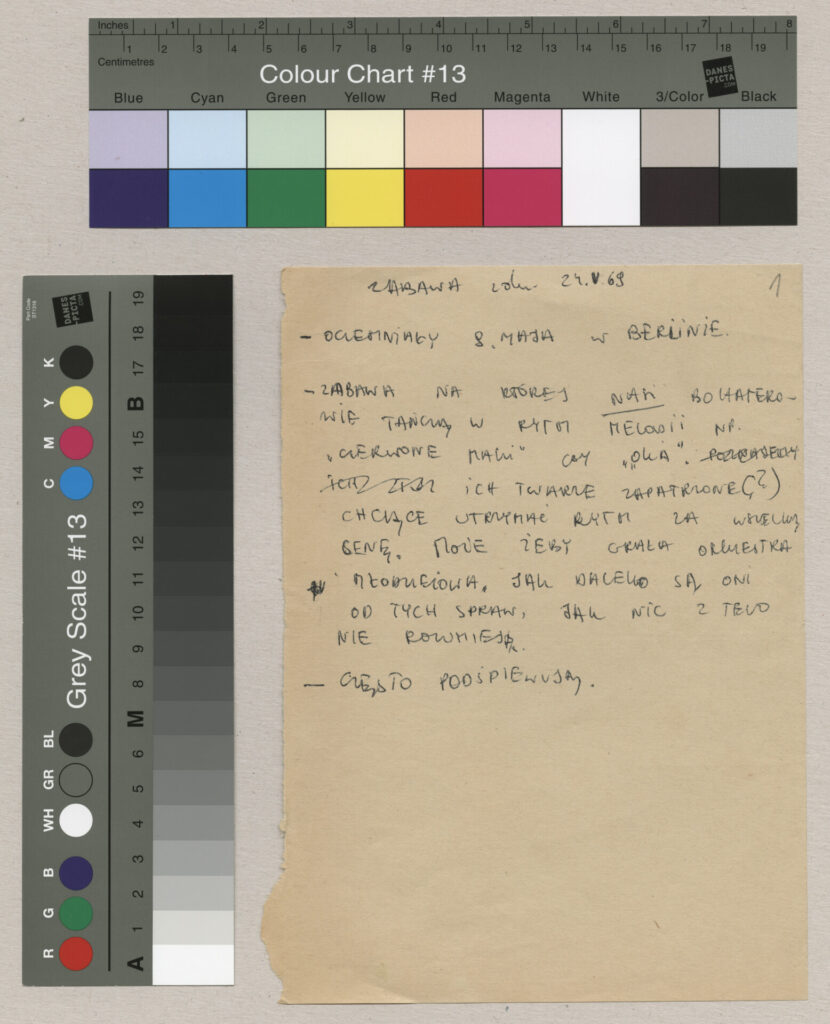 Inches 1 2 3 4 5 6 7 8
1 2 3 4 5 6 7 8 9 10 11 12 13 14 15 16 17 18 19
Centimetres
Colour Chart #13
DANES-PICTA.COM
Blue Cyan Green Yellow Red Magenta White 3/Color Black
DANES-PICTA.COM
Grey Scale #13
K Y M C
BL GR WH B G R
19 18 17 B 15 14 13 12 11 10 9 8 M 6 5 4 3 2 1 A
ZABAWA 24.V.69 1
— OCIEMNIAŁY 8. MAJA W BERLINIE.
— ZABAWA NA KTÓREJ NAM BOHATERO-
WIE TAŃCZĄ W RYTM MELODII NP.
„CZERWONE MAKI" CZY „OKA".
ICH TWARZE ZAPATRZONE (?)
CHCĄCE UTRZYMAĆ RYTM ZA WSZELKĄ
CENĘ. MOŻE ŻEBY GRAŁA ORKIESTRA
MŁODZIEŻOWA. JAK DALEKO SĄ ONI
OD TYCH SPRAW, JAK NIC Z TEGO
NIE ROZUMIEJĄ.
— CZĘSTO PODŚPIEWUJĄ.